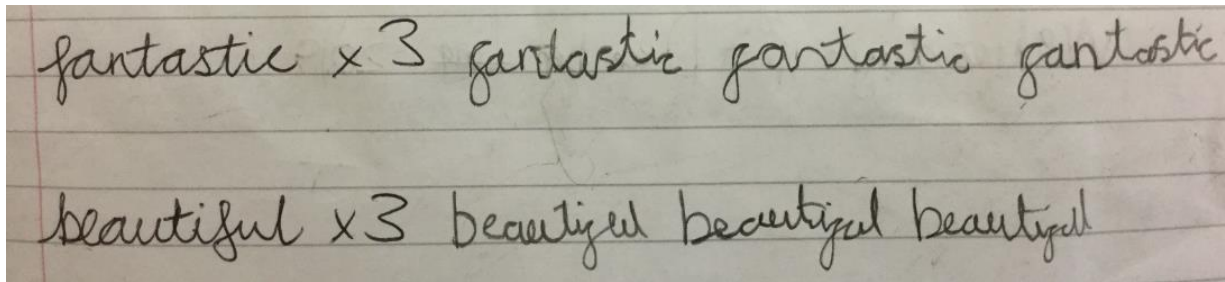 fantastic x 3 fantastic fantastic fantastic
beautiful x3 beautiful beautiful beautiful